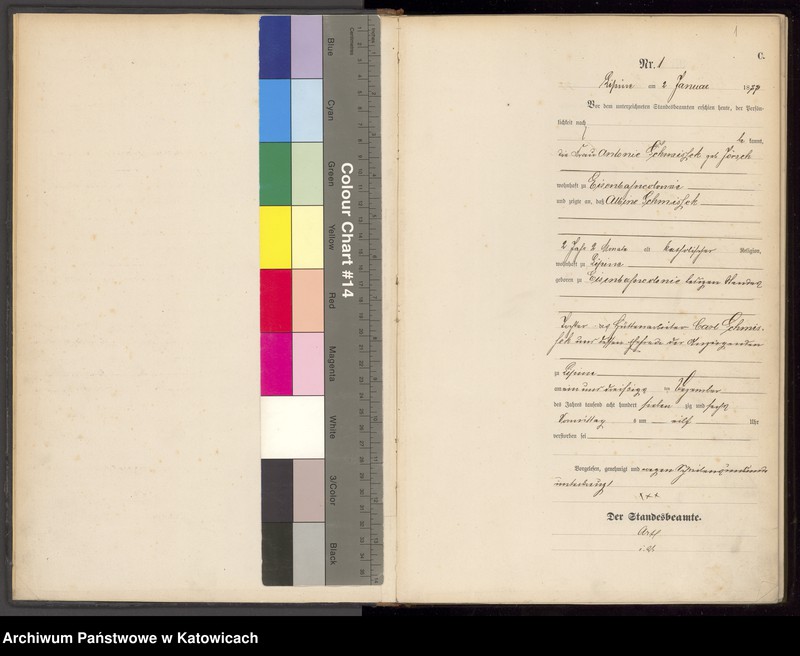 Blue
Cyan
Green
Yellow
Red
Magenta
White
3/Color
Black
Colour Chart #14
Centimetres
Inches
1
C.
Nr. 1
Lipine am 2 Januar 1877
Vor dem unterzeichneten Standesbeamten erschien heute, der Persön-
lichkeit nach
kannt,
die Frau Antonie Schmissek geb
wohnhaft zu Eisenbahncolonie
und zeigte an, daß Albine Schmissek
2 Jahr 2 Monate alt katholischer Religion,
wohnhaft zu Lipine
geboren zu Eisenbahncolonie ledigen Standes
Tochter des Hüttenarbeiter Carl Schmis-
sek und dessen Ehefrau der Anzeigenden
zu Lipine
am ein und dreißigsten Dezember
des Jahres tausend acht hundert siebenzig und sechs
Vormittags um elf Uhr
verstorben sei
Vorgelesen, genehmigt und wegen Schreibensunkunde
unterkreuzt
+++
Der Standesbeamte.
Archiwum Państwowe w Katowicach